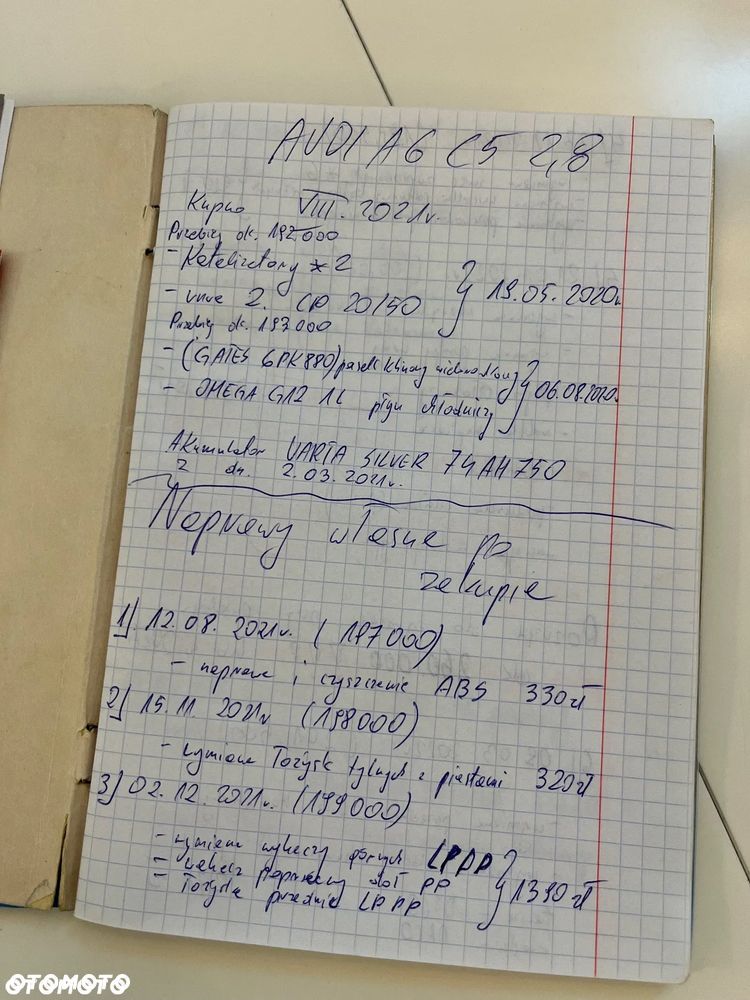 AUDI A6 C5 2,8
Kupno VIII. 2021r.
Przebieg ok. 192.000
- Katalizatory * 2
19.05.2020r.
- 2. LP 20/50
Przebieg ok. 193000
- (GATES 6PK880) pasek klinowy wielorowkowy
06.08.2020r.
- OMEGA G12 1L płyn chłodniczy
Akumulator VARTA SILVER 74AH 750
z dn. 2.03.2021r.
Naprawy własne po
zakupie
1) 12.08.2021r. (197000)
- naprawa i czyszczenie ABS 330zł
2) 15.11.2021r (198000)
- wymiana Łożysk tylnych z piastami 320zł
3) 02.12.2021r. (199000)
- wymiana wahaczy górnych LPPP
- wahacz poprzeczny dół PP
1390 zł
- Łożyska przednie LP PP
OTOMOTO